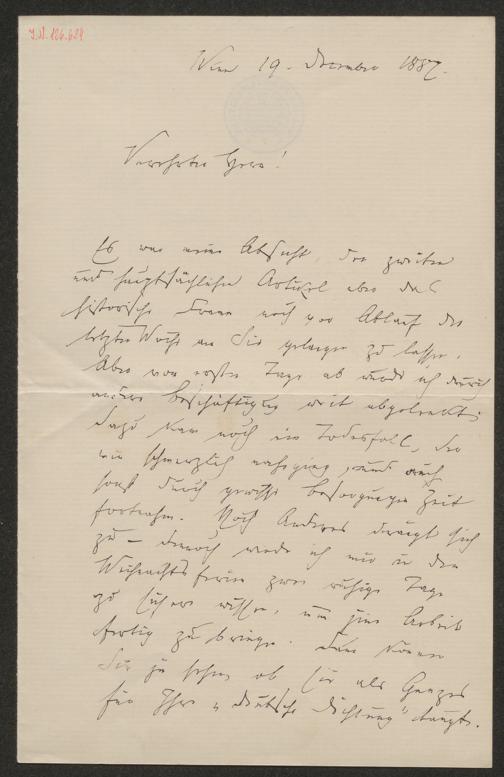 I.N. 126.624
Wien 19. Dezember 1887.
Verehrter Herr!
Es war meine Absicht, den zweiten
und hauptsächlichen Artikel über das
historische Drama noch vor Ablauf der
letzten Woche an Sie gelangen zu lassen.
Aber vom ersten Tage ab wurde ich durch
andere Beschäftigung weit abgelenkt;
dazu kam noch ein Todesfall, der
mir schmerzlich nahe ging, und auch
sonst durch gewisse Besorgungen Zeit
fortnahm. Noch Anderes drängt sich
zu – dennoch werde ich mir in den
Weihnachtsferien zwei ruhige Tage
zu sichern wissen, um jene Arbeit
fertig zu bringen. Dann können
Sie ja sehen ob sie als Ganzes
für Ihre „Deutsche Dichtung" taugt.